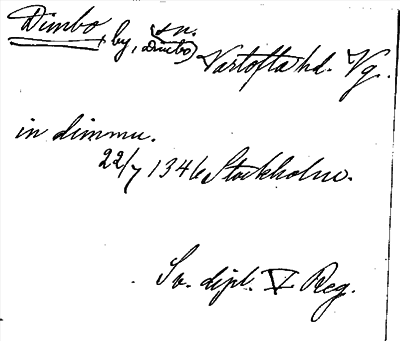 Dimbo, by, (Dimbo) sn. Vartofta hd. Vg.
in dimmu.
22/7 1346 Stockholm.
Sv. dipl. V Reg.